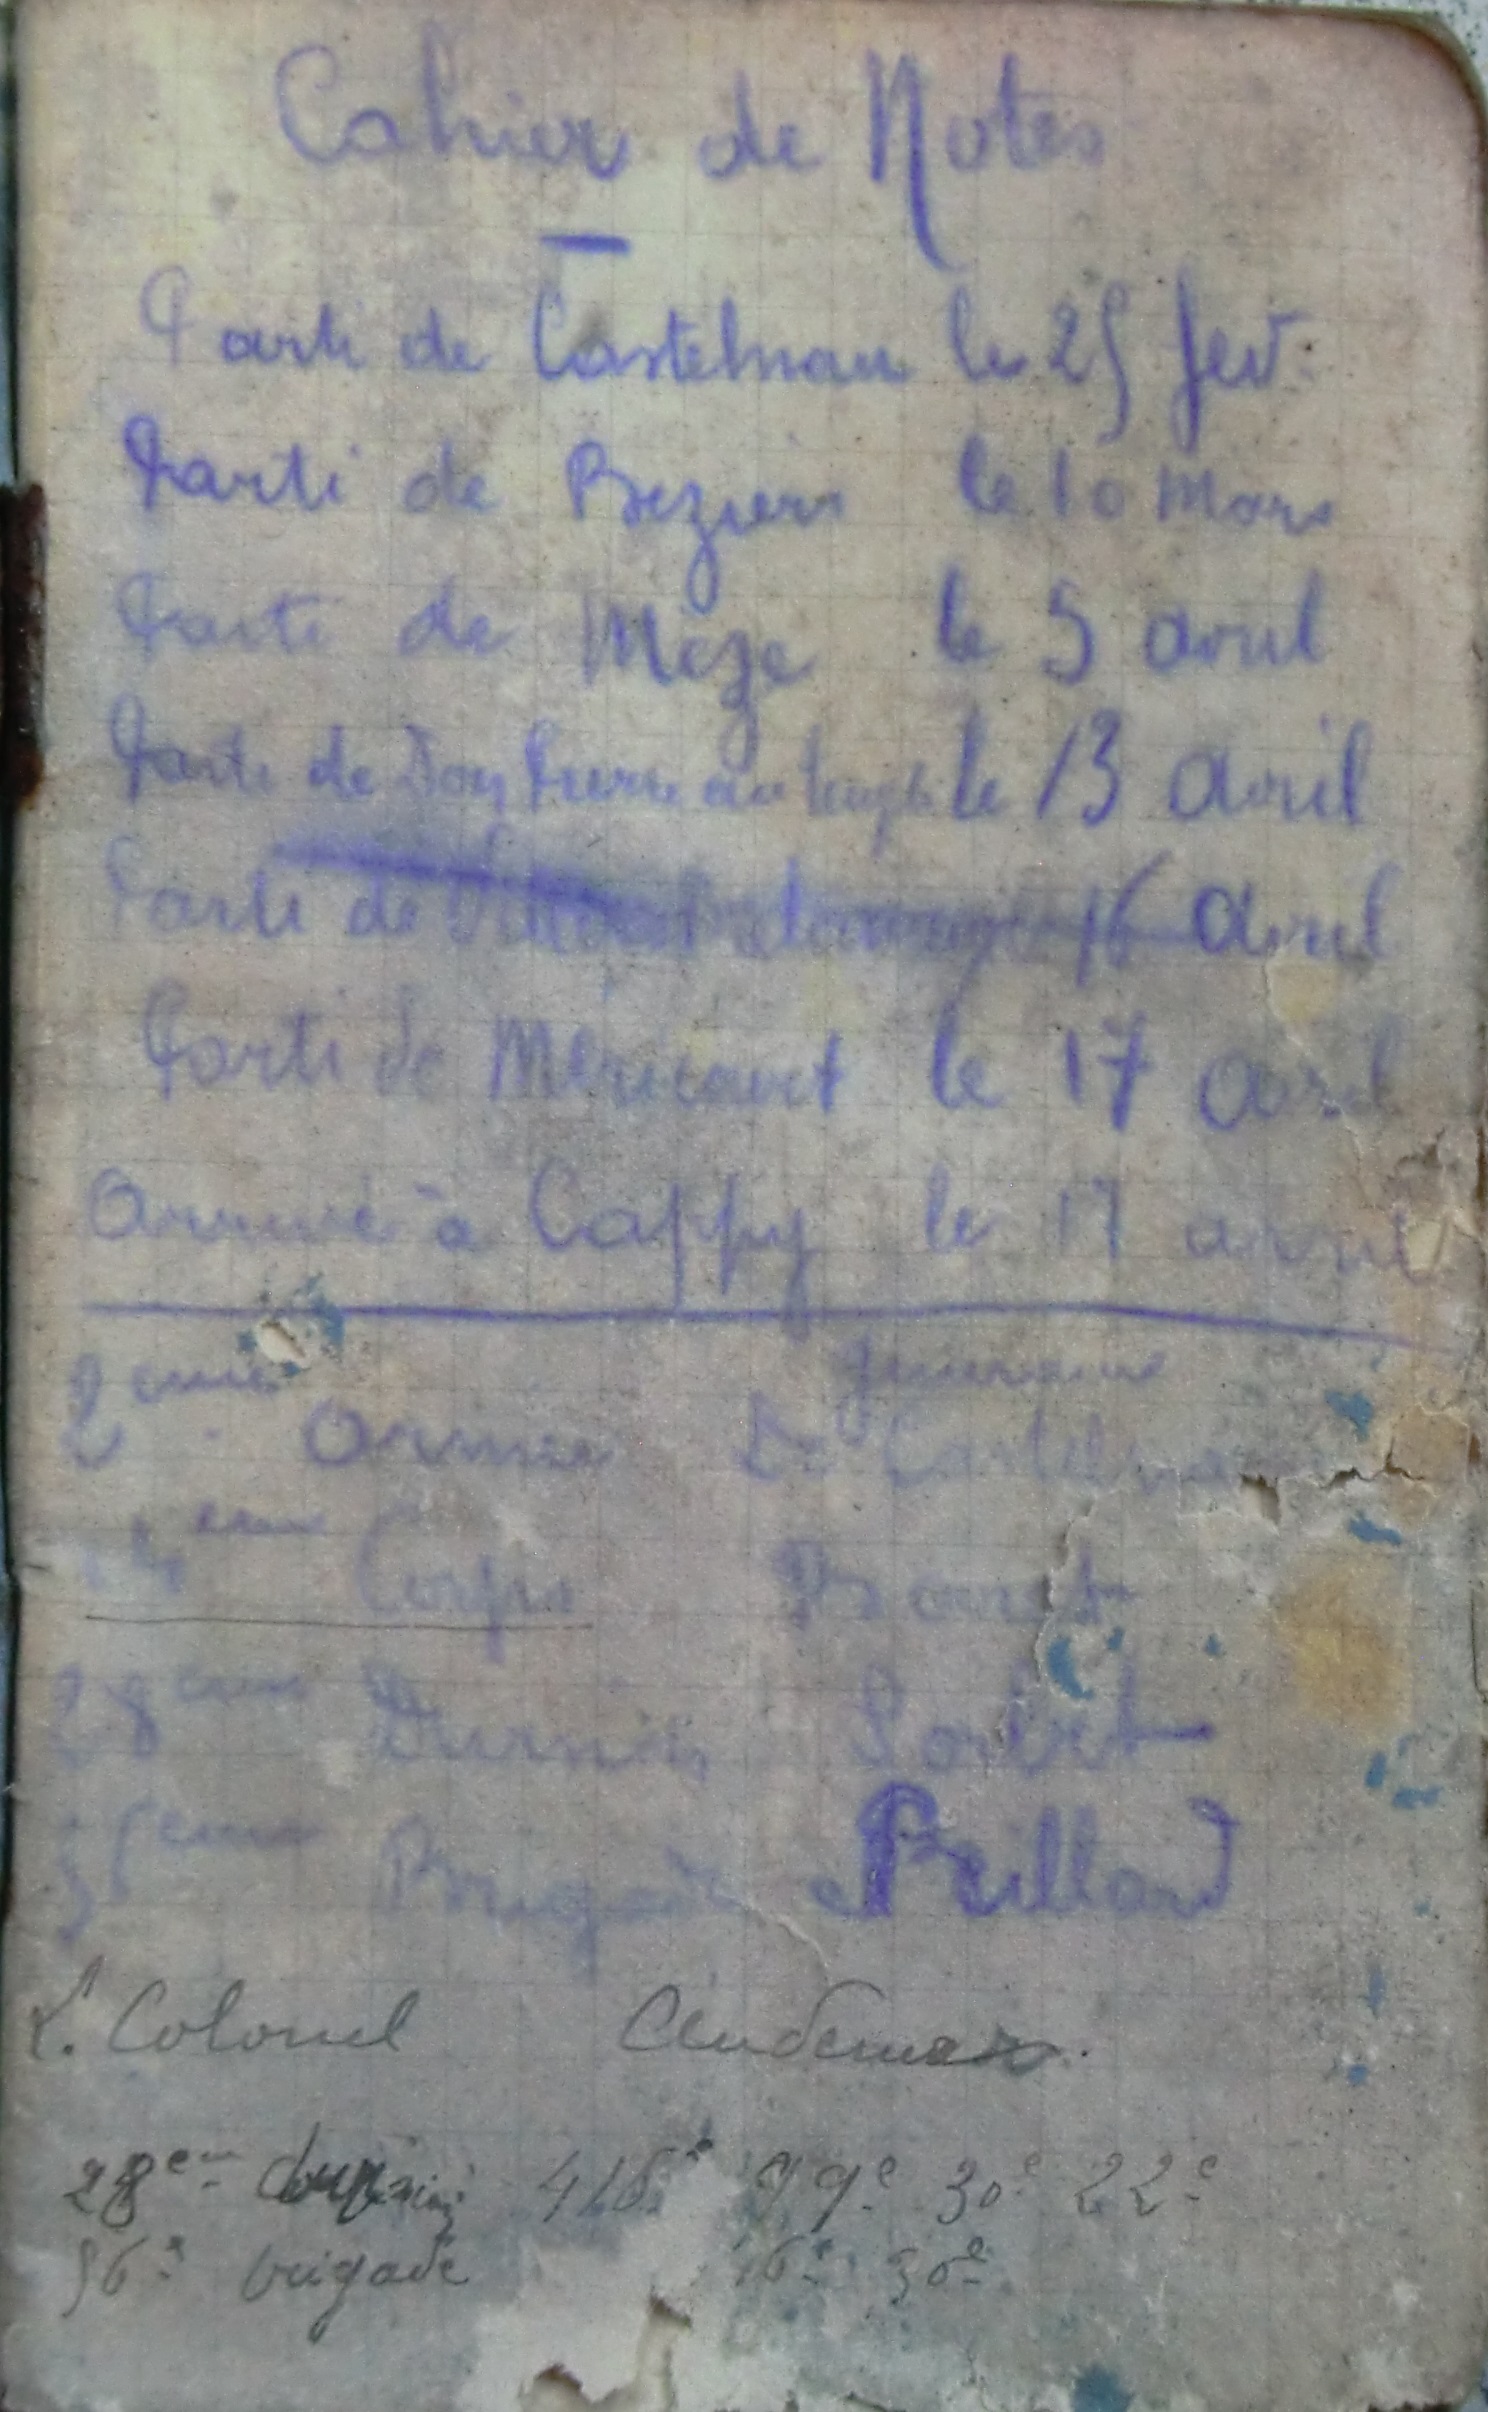 Cahier de Notes
Parti de Castelnau le 25 fev.
Parti de Beziers le 10 Mars
Parti de Mèze le 5 avril
Parti de Dompierre au temple le 13 avril
Parti de 16 avril
Parti de Méricourt le 17 avril
Arrivé à Cappy le 17 avril
2eme Armée General De Castelnau
14eme Corps Baret
28eme Division
56eme Brigade
L. Colonel
28eme division 416e 99e 30e 22e
56e brigade 16e 30e